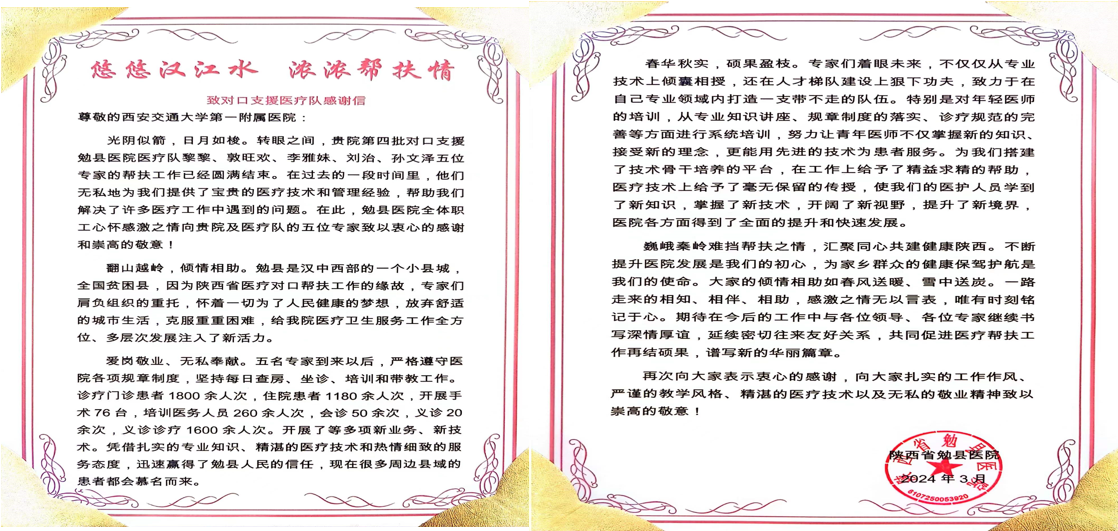 悠悠汉江水 浓浓帮扶情
致对口支援医疗队感谢信
尊敬的西安交通大学第一附属医院：
光阴似箭，日月如梭。转眼之间，贵院第四批对口支援
勉县医院医疗队黎黎、敦旺欢、李雅妹、刘治、孙文泽五位
专家的帮扶工作已经圆满结束。在过去的一段时间里，他们
无私地为我们提供了宝贵的医疗技术和管理经验，帮助我们
解决了许多医疗工作中遇到的问题。在此，勉县医院全体职
工心怀感激之情向贵院及医疗队的五位专家致以衷心的感谢
和崇高的敬意！
翻山越岭，倾情相助。勉县是汉中西部的一个小县城，
全国贫困县，因为陕西省医疗对口帮扶工作的缘故，专家们
肩负组织的重托，怀着一切为了人民健康的梦想，放弃舒适
的城市生活，克服重重困难，给我院医疗卫生服务工作全方
位、多层次发展注入了新活力。
爱岗敬业、无私奉献。五名专家到来以后，严格遵守医
院各项规章制度，坚持每日查房、坐诊、培训和带教工作。
诊疗门诊患者 1800 余人次，住院患者 1180 余人次，开展手
术 76 台，培训医务人员 260 余人次，会诊 50 余次，义诊 20
余次，义诊诊疗 1600 余人次。开展了等多项新业务、新技
术。凭借扎实的专业知识、精湛的医疗技术和热情细致的服
务态度，迅速赢得了勉县人民的信任，现在很多周边县域的
患者都会慕名而来。
春华秋实，硕果盈枝。专家们着眼未来，不仅仅从专业
技术上倾囊相授，还在人才梯队建设上狠下功夫，致力于在
自己专业领域内打造一支带不走的队伍。特别是对年轻医师
的培训，从专业知识讲座、规章制度的落实、诊疗规范的完
善等方面进行系统培训，努力让青年医师不仅掌握新的知识、
接受新的理念，更能用先进的技术为患者服务。为我们搭建
了技术骨干培养的平台，在工作上给予了精益求精的帮助，
医疗技术上给予了毫无保留的传授，使我们的医护人员学到
了新知识，掌握了新技术，开阔了新视野，提升了新境界，
医院各方面得到了全面的提升和快速发展。
巍峨秦岭难挡帮扶之情，汇聚同心共建健康陕西。不断
提升医院发展是我们的初心，为家乡群众的健康保驾护航是
我们的使命。大家的倾情相助如春风送暖、雪中送炭。一路
走来的相知、相伴、相助，感激之情无以言表，唯有时刻铭
记于心。期待在今后的工作中与各位领导、各位专家继续书
写深情厚谊，延续密切往来友好关系，共同促进医疗帮扶工
作再结硕果，谱写新的华丽篇章。
再次向大家表示衷心的感谢，向大家扎实的工作作风、
严谨的教学风格、精湛的医疗技术以及无私的敬业精神致以
崇高的敬意！
陕西省勉县医院
2024 年 3 月
陕西省勉县医院
6107250053920